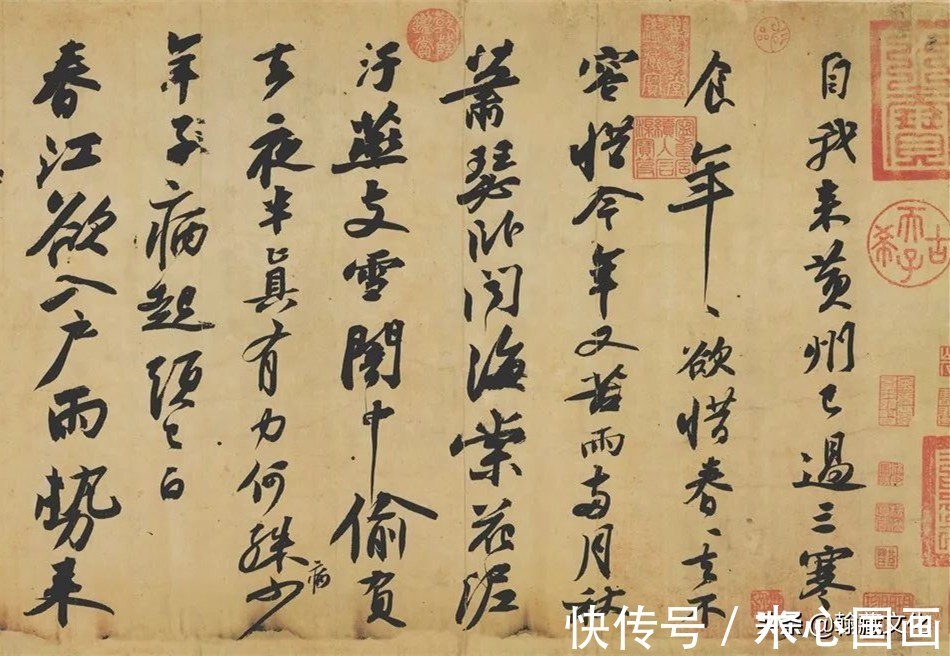 自我来黄州已過三寒
食年ヽ欲惜春ヽ去不
容惜今年又苦雨兩月秋
蕭瑟卧聞海棠花泥
汙燕支雪闇中偷負
去夜半真有力何殊少
病
年子病起頭已白
春江欲入户雨勢来
古希天子
快传号 / 水心国画
@翰藏文化